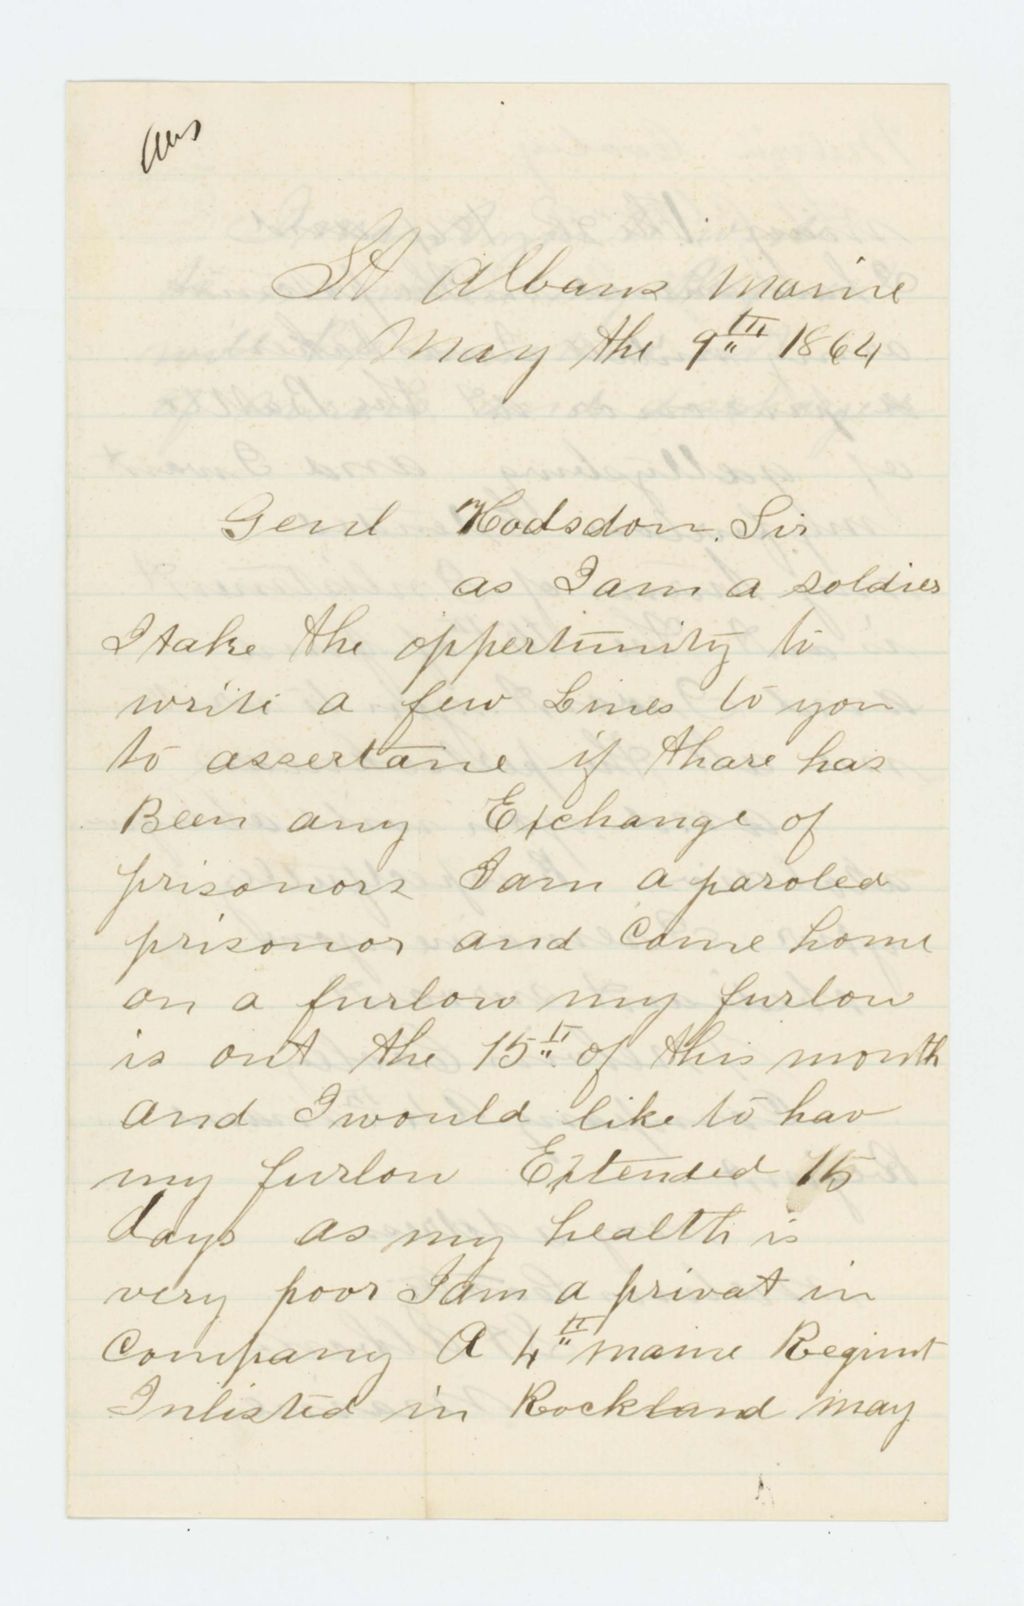 Ans
St Albans Maine
May the 9th 1864
Genl Hodsdon. Sir
as I am a soldier
I take the oppertunity to
write a few Lines to you
to assertane if thare has
Been any Exchange of
prisonors I am a paroled
prisonor and Come home
on a furlow my furlow
is out the 15th of this month
and I would like to hav
my furlow Extended 15
days as my health is
very poor I am a privat in
Company A 4th maine Regimt
Inlisted in Rockland May